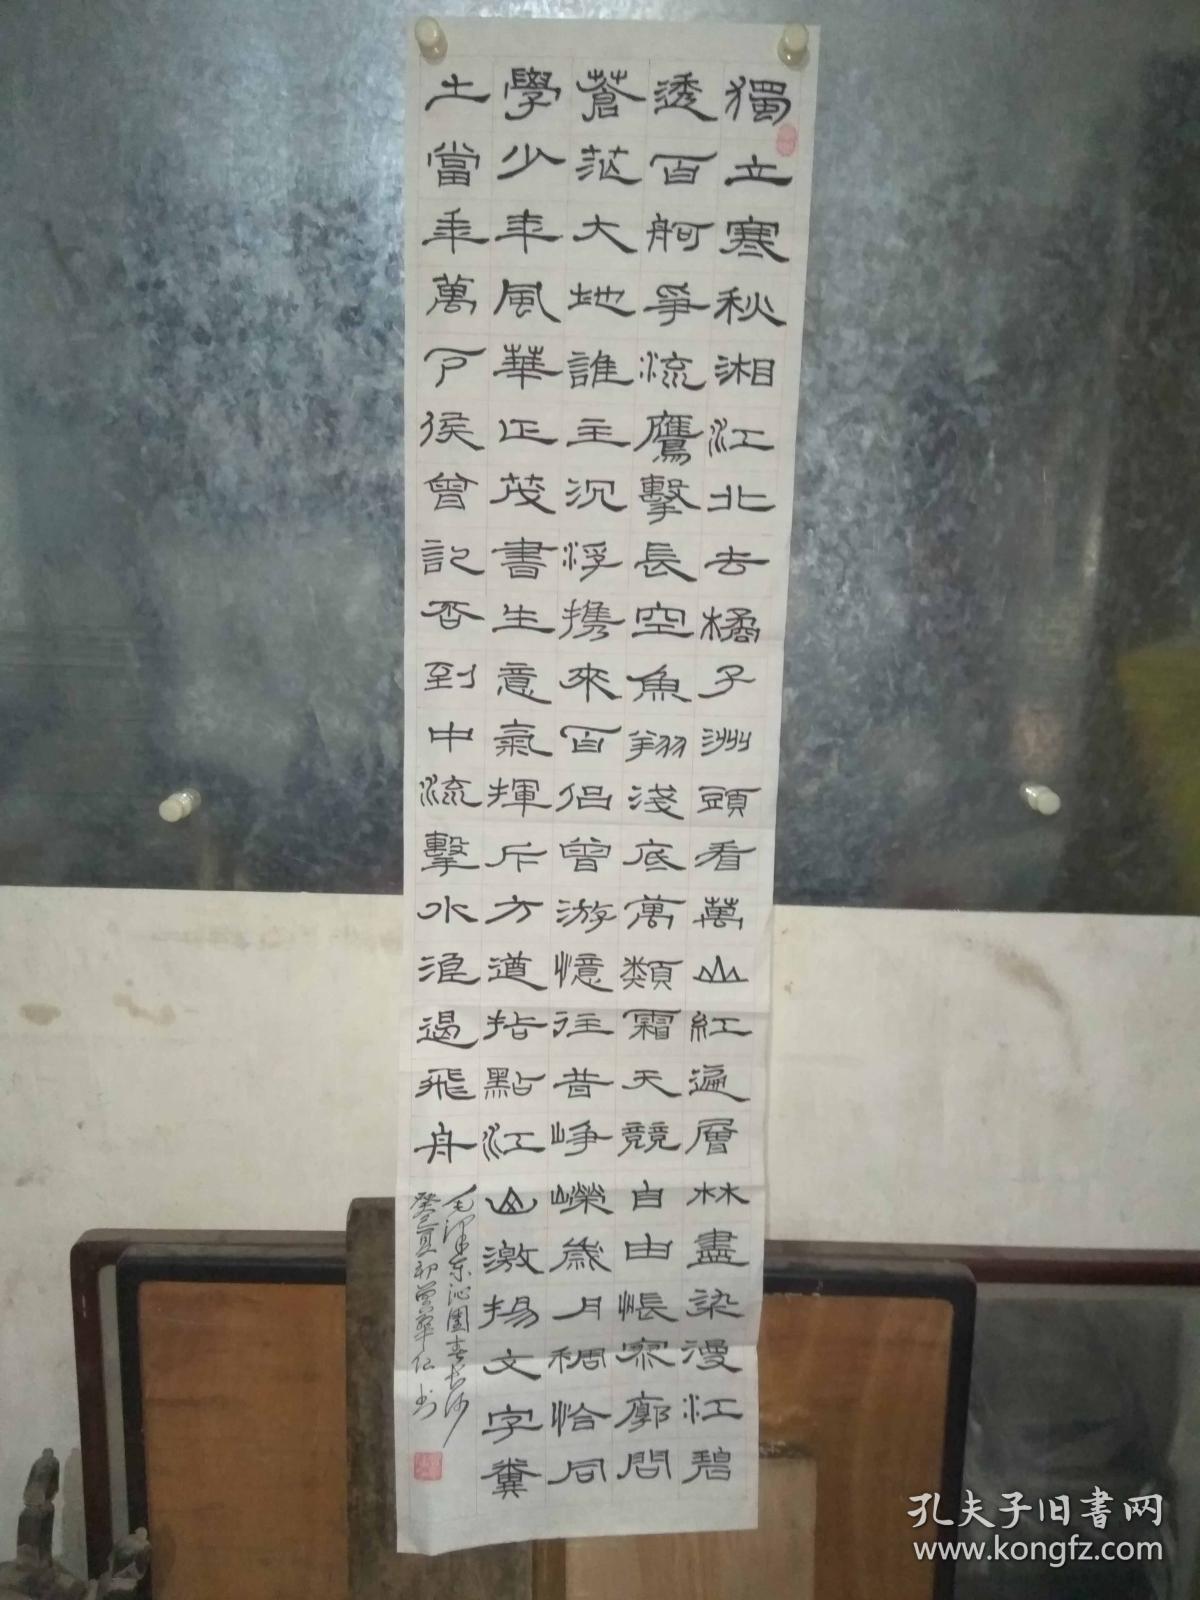 獨立寒秋湘江北去橘子洲頭看萬山紅遍層林盡染漫江碧
透百舸爭流鷹擊長空魚翔淺底萬類霜天競自由悵寥廓問
蒼茫大地誰主沉浮携來百侶曾游憶往昔崢嶸歲月稠恰同
學少年風華正茂書生意氣揮斥方遒指點江山激揚文字糞
土當年萬戶侯曾記否到中流擊水浪遏飛舟
毛澤东沁園春长沙
癸巳夏初曾華仁书
孔夫子旧书网
www.kongfz.com